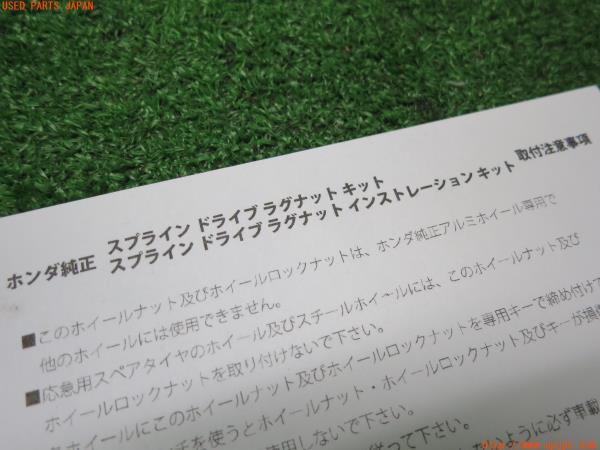 USED PARTS JAPAN
ホンダ純正 スプライン ドライブ ラグナット キット
スプライン ドライブ ラグナット インストレーション キット 取付注意事項
■このホイールナット及びホイールロックナットは、ホンダ純正アルミホイール専用で
他のホイールには使用できません。
■応急用スペアタイヤのホイール及びスチールホイールには、このホイールナット及び
ホイールロックナットを取り付けないで下さい。
ホイールにこのホイールナット及びホイールロックナットを専用キーで締め付けて
を使うとホイールナット・ホイールロックナット及びキーが損傷
使用しないで下さい。
従って下さい。
ように必ず車載